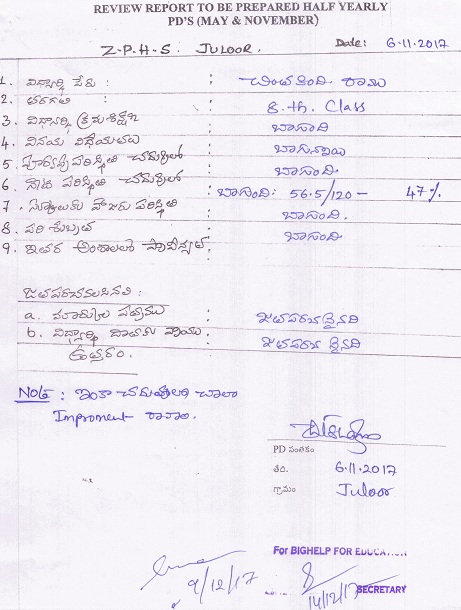 REVIEW REPORT TO BE PREPARED HALF YEARLY
PD'S (MAY & NOVEMBER)
Z.P.H.S. JULOOR.
Date: 6-11-2017
1. విద్యార్థి పేరు : చింతకింది రాము
2. తరగతి : 8.th. Class
3. విద్యార్థి క్రమశిక్షణ : బాగుంది
4. వినయ విధేయతలు : బాగున్నాయి
5. చదువులో : బాగుంది.
6. పరిస్థితి చదువులో : బాగుంది: 56.5/120 - 47%
7. హాజరు పరిస్థితి : బాగుంది.
8. పరిశుభ్రత : బాగుంది
9. ఇతర అంశాలలో
జతపరచవలసినవి :
a. మార్కుల పత్రము : జతపరచనైనది
b. విద్యార్థి వ్రాయు : జతపరచనైనది
ఉత్తరం.
Note : ఇంకా చదువులో చాలా
Improment రావాలి.
PD సంతకం
తేది. 6.11.2017
గ్రామం Juloor
For BIGHELP FOR
9/12/17
14/12/17
SECRETARY